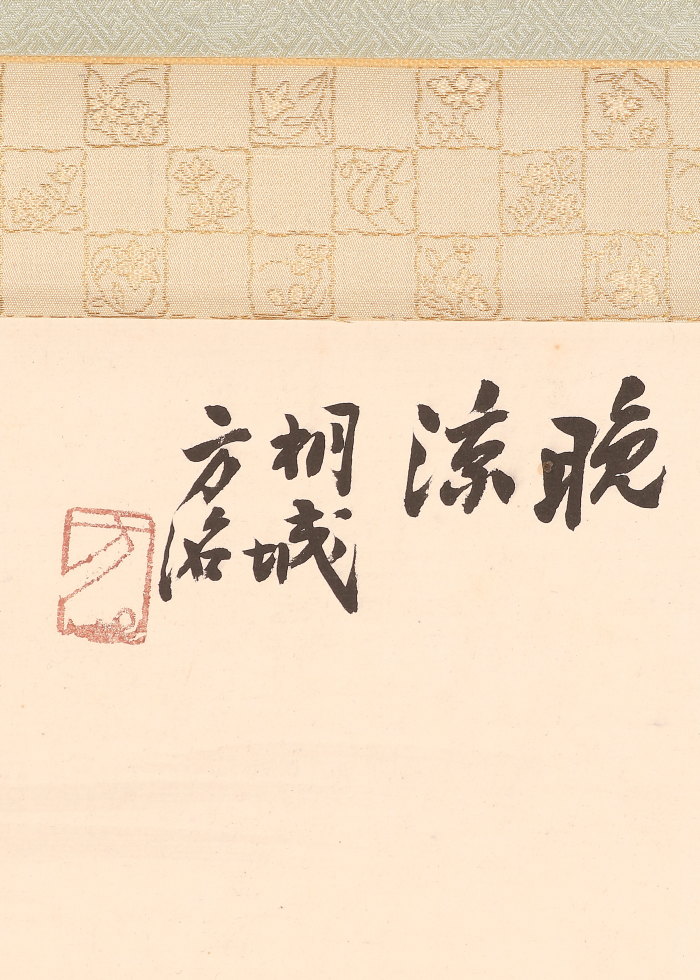 晚
涼
桐城
方洺